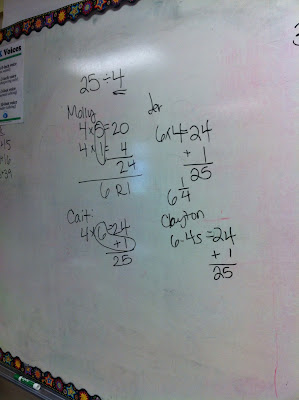 Voices
25 ÷ 4
Molly
4 × 5 = 20
4 × 1 = 4
24
6 R1
Jen
6 × 4 = 24
+ 1
25
6 1/4
Cait:
4 × 6 = 24
+1
25
Clayton
6-4s = 24
+ 1
25